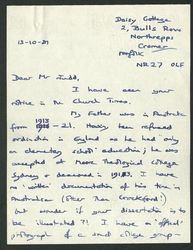 Daisy Cottage
2, Bulls Row
Northrepps
Cromer
Norfolk
NR27 0LF
13-10-81
Dear Mr Judd,
I have seen your
notice in the Church Times.
My Father was in Australia
1913
from - 21. Having been refused
ordination in England as he had only
an elementary school education, he was
accepted at Moore Theological College
Sydney & deaconed in 1913. I have
no written documentation of his time in
Australia (other than Crockford!)
but wonder if your dissertation is to
be illustrated?? I have an official
photograph of a small college group